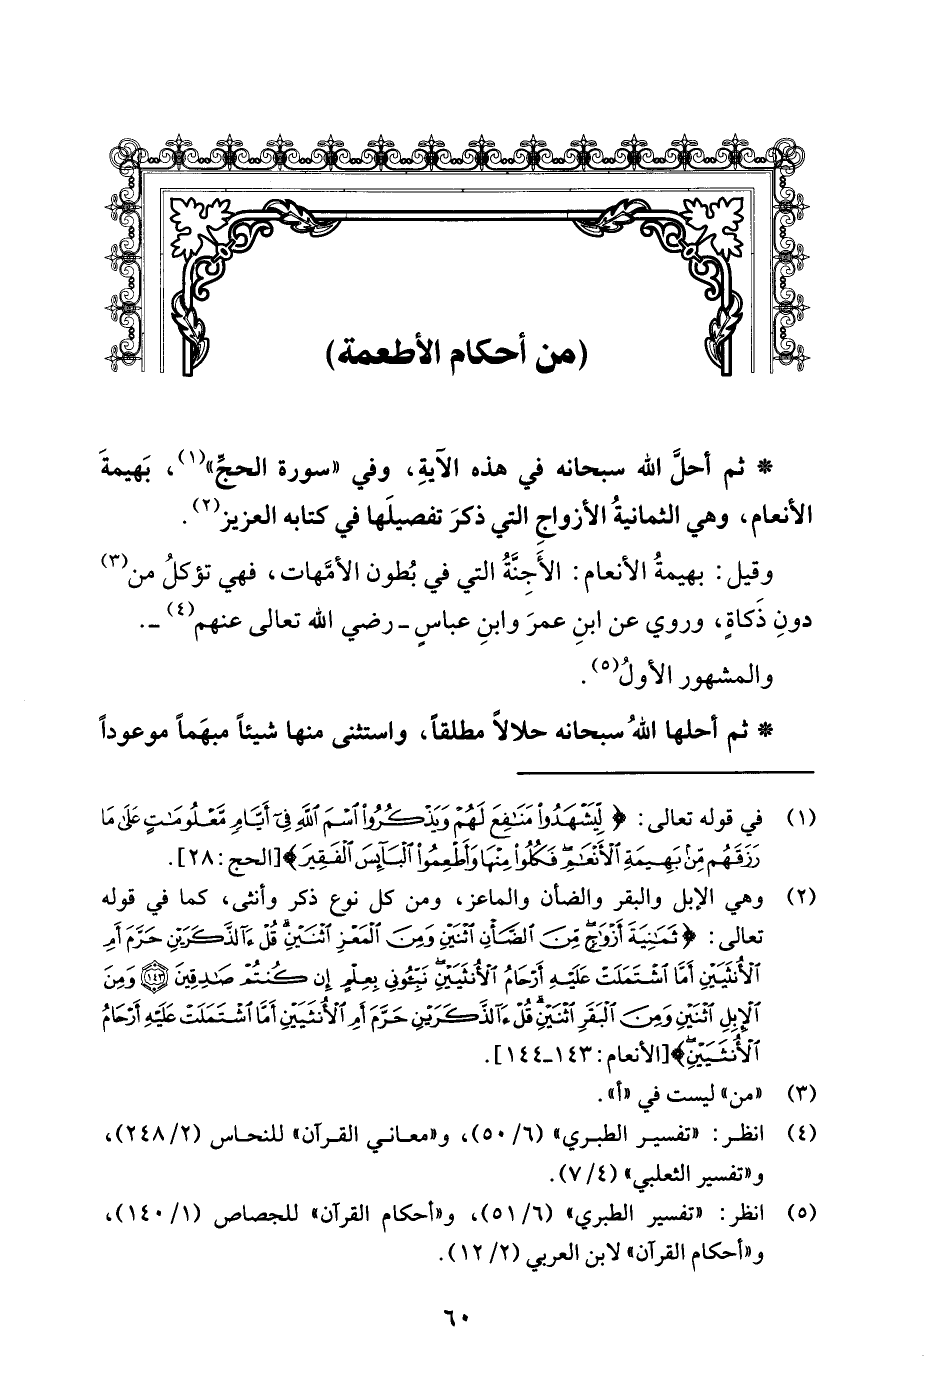 (من أحكام الأطعمة)
* ثم أحلَّ الله سبحانه في هذه الآيةِ، وفي «سورة الحجِّ»(١)، بَهيمةَ
الأنعام، وهي الثمانيةُ الأزواجِ التي ذكرَ تفصيلَها في كتابه العزيز(٢).
وقيل: بهيمةُ الأنعام: الأَجِنَّةُ التي في بُطون الأمَّهات، فهي تؤكلُ من(٣)
دونِ ذَكاةٍ، وروي عن ابنِ عمرَ وابنِ عباسٍ ـ رضي الله تعالى عنهم(٤) ـ.
والمشهور الأولُ(٥).
* ثم أحلها اللهُ سبحانه حلالاً مطلقاً، واستثنى منها شيئاً مبهَماً موعوداً
(١) في قوله تعالى: ﴿لِّيَشْهَدُوا۟ مَنَٰفِعَ لَهُمْ وَيَذْكُرُوا۟ ٱسْمَ ٱللَّهِ فِىٓ أَيَّامٍ مَّعْلُومَٰتٍ عَلَىٰ مَا
رَزَقَهُم مِّنۢ بَهِيمَةِ ٱلْأَنْعَٰمِۖ فَكُلُوا۟ مِنْهَا وَأَطْعِمُوا۟ ٱلْبَآئِسَ ٱلْفَقِيرَ﴾ [الحج: ٢٨].
(٢) وهي الإبل والبقر والضأن والماعز، ومن كل نوع ذكر وأنثى، كما في قوله
تعالى: ﴿ثَمَٰنِيَةَ أَزْوَٰجٍۖ مِّنَ ٱلضَّأْنِ ٱثْنَيْنِ وَمِنَ ٱلْمَعْزِ ٱثْنَيْنِۗ قُلْ ءَآلذَّكَرَيْنِ حَرَّمَ أَمِ
ٱلْأُنثَيَيْنِ أَمَّا ٱشْتَمَلَتْ عَلَيْهِ أَرْحَامُ ٱلْأُنثَيَيْنِۖ نَبِّـُٔونِى بِعِلْمٍ إِن كُنتُمْ صَٰدِقِينَ ١٤٣ وَمِنَ
ٱلْإِبِلِ ٱثْنَيْنِ وَمِنَ ٱلْبَقَرِ ٱثْنَيْنِۗ قُلْ ءَآلذَّكَرَيْنِ حَرَّمَ أَمِ ٱلْأُنثَيَيْنِ أَمَّا ٱشْتَمَلَتْ عَلَيْهِ أَرْحَامُ
ٱلْأُنثَيَيْنِۖ﴾ [الأنعام: ١٤٣ـ١٤٤].
(٣) «من» ليست في «أ».
(٤) انظر: «تفسير الطبري» (٦/ ٥٠)، و«معاني القرآن» للنحاس (٢/ ٢٤٨)،
و«تفسير الثعلبي» (٤/ ٧).
(٥) انظر: «تفسير الطبري» (٦/ ٥١)، و«أحكام القرآن» للجصاص (١/ ١٤٠)،
و«أحكام القرآن» لابن العربي (٢/ ١٢).
٦٠